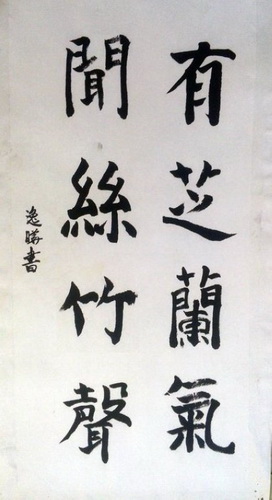 有芝蘭氣
聞絲竹聲
逸勝書